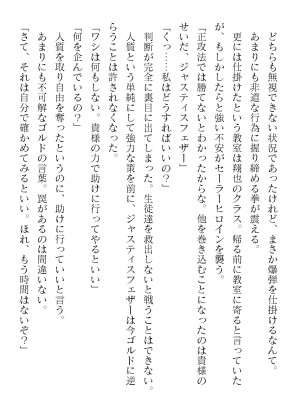 どちらも無視できない状況であったけれど、まさか爆弾を仕掛けるなんて。
あまりにも非道な行為に握り締める拳が震える。
更には仕掛けたという教室は翔也のクラス。帰る前に教室に寄ると言っていた
が、もしかしたらと強い不安がセーラーヒロインを襲う。
「正攻法では勝てないとわかったからな。他を巻き込むことになったのは貴様の
せいだ、ジャスティスフェザー」
「くっ……私はどうすればいいの？」
判断が完全に裏目に出てしまった。生徒達を救出しないと戦うことはできない。
人質という単純にして強力な策を前に、ジャスティスフェザーは今ゴルドに逆
らうことは許されなくなった。
「ワシは何もしない。貴様の力で助けに行ってやるといい」
「何を企んでいるの？」
人質を取り自由を奪ったというのに、助けに行っていいと言う。
あまりにも不可解なゴルドの言葉。罠があるのは間違いない。
「さて、それは自分で確かめてみるといい。ほれ、もう時間はないぞ？」